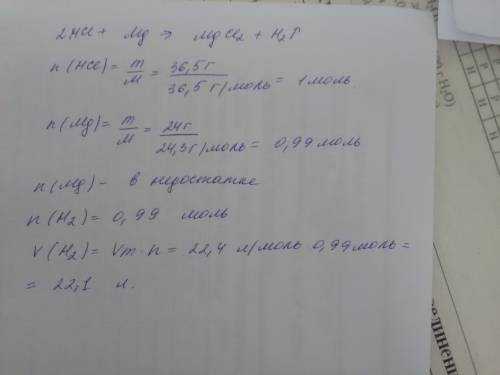 2HCl + Mg → MgCl2 + H2↑
n(HCl) = m/M = 36,5г/36,5г/моль = 1 моль.
n(Mg) = m/M = 24г/24,3г/моль = 0,99 моль
n(Mg) – в недостатке
n(H2) = 0,99 моль
V(H2) = Vm · n = 22,4 л/моль 0,99 моль =
= 22,1 л.